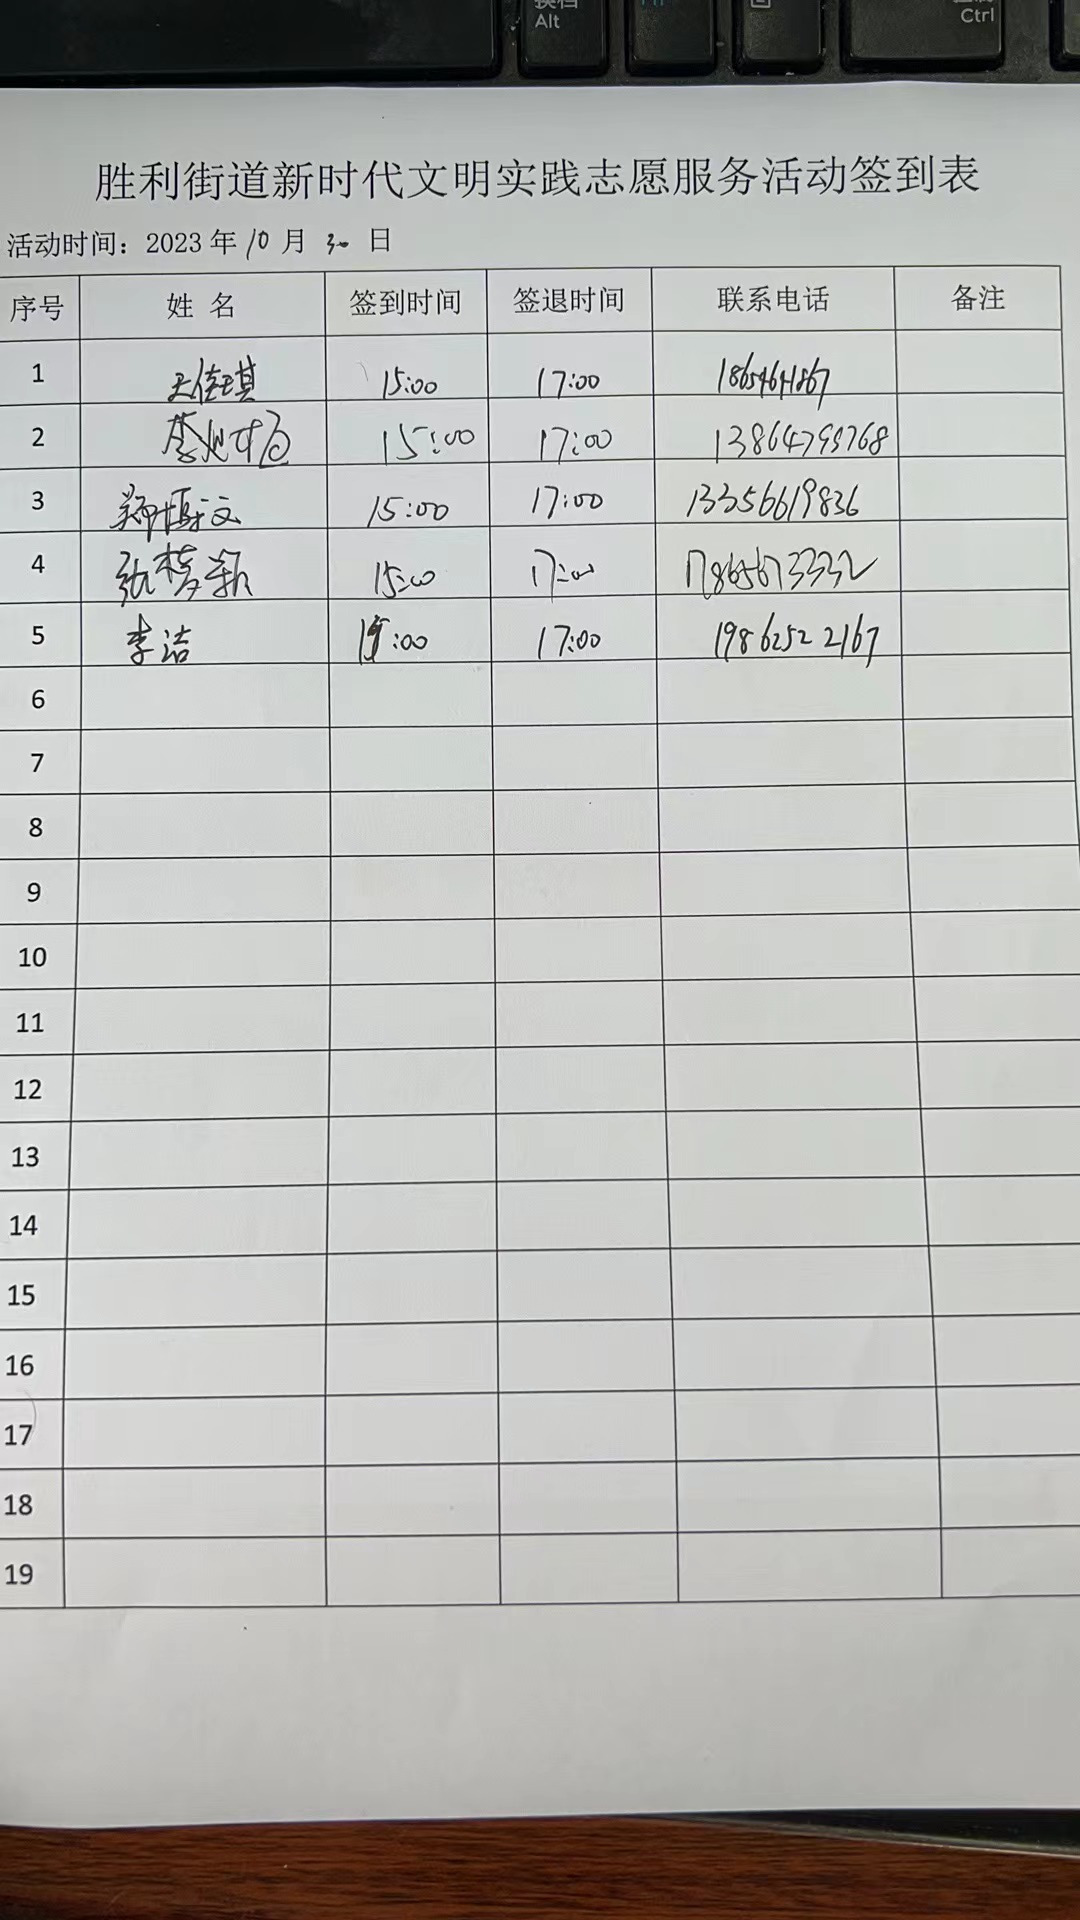 Alt
Ctrl
胜利街道新时代文明实践志愿服务活动签到表
活动时间：2023年10月30日
序号 姓 名 签到时间 签退时间 联系电话 备注
1 王佳琪 15:00 17:00
2 15:00 17:00 13864799768
3 郑博文 15:00 17:00 13356619836
4 张梦颖 15:00 17:00 17865673332
5 李洁 15:00 17:00 19862522167
6
7
8
9
10
11
12
13
14
15
16
17
18
19